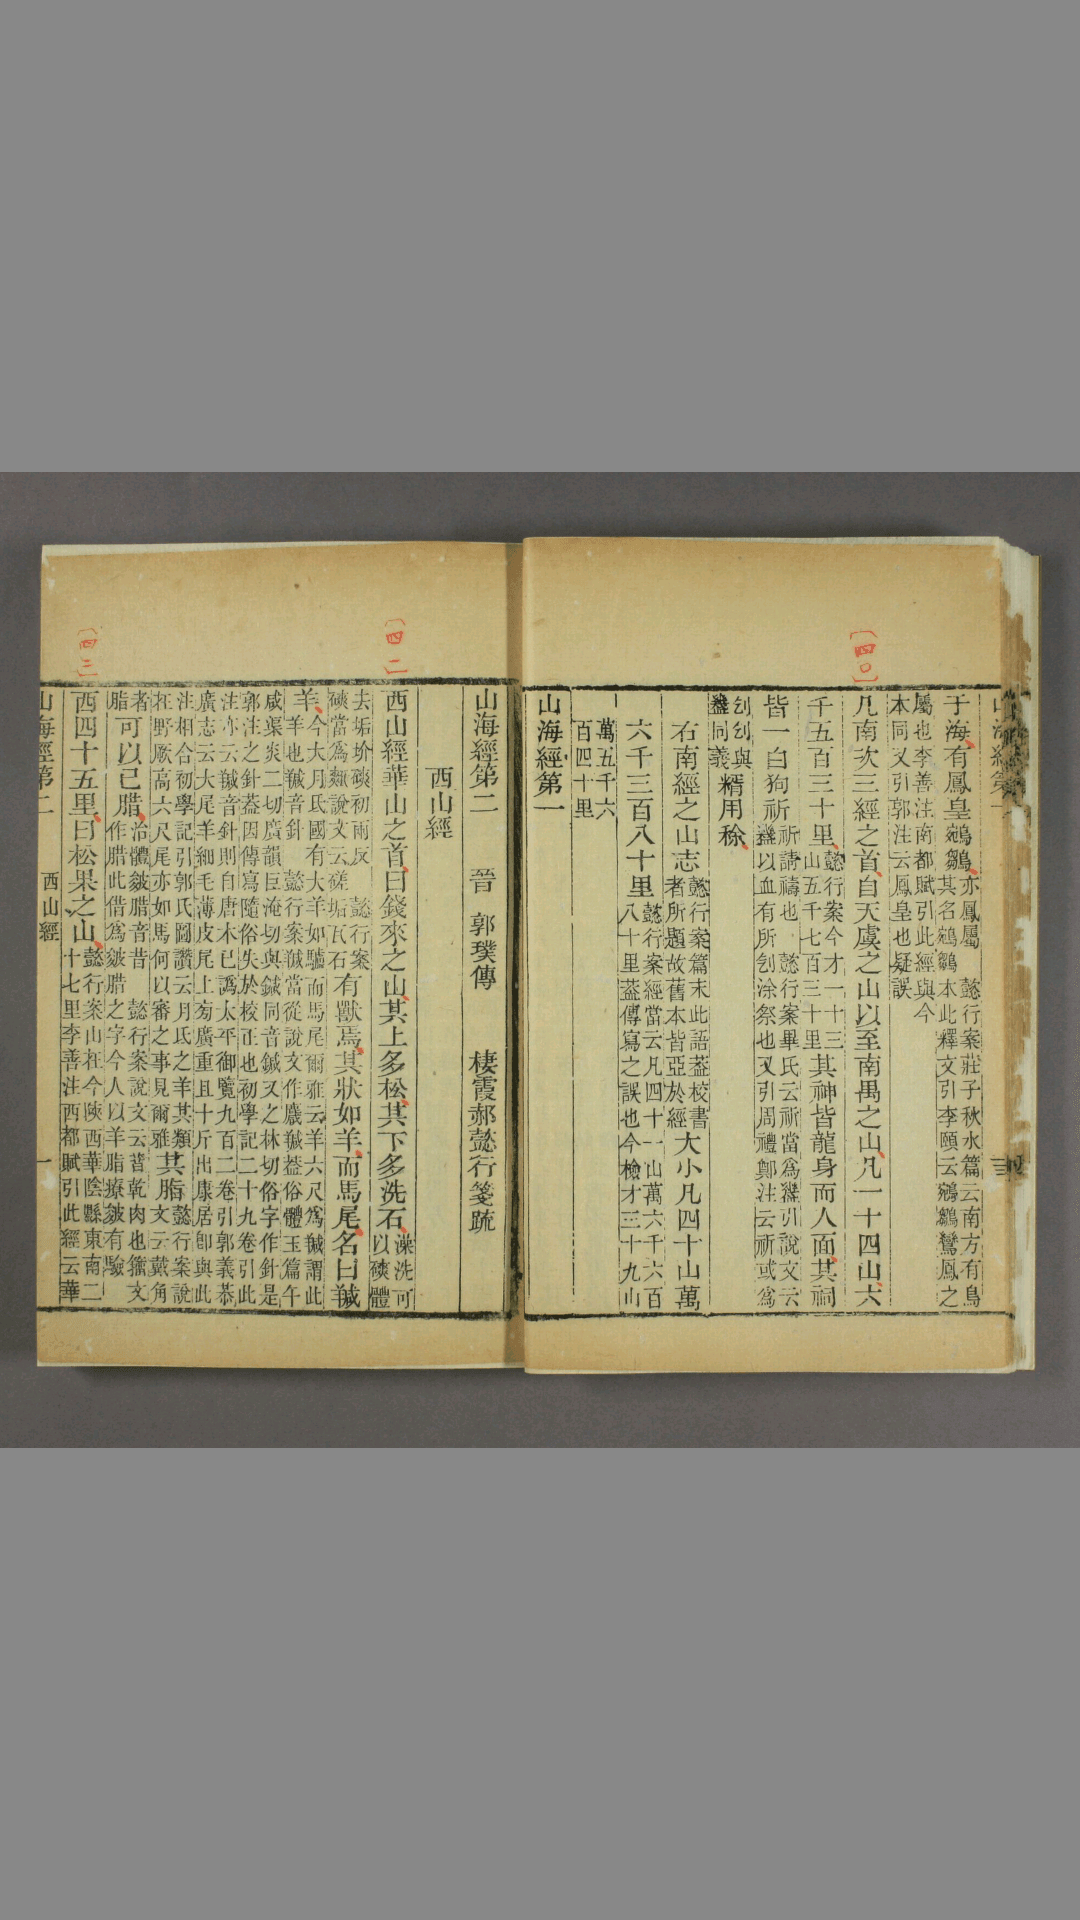 〔四〇〕
于海有鳳皇鵷鶵亦鳳屬 懿行案莊子秋水篇云南方有鳥
宛鶵其名鵷鶵本此釋文引李頤云鵷鶵鸞鳳之
屬也李善注南都賦引此經與今
本同又引郭注云鳳皇也疑誤
凡南次三經之首自天虞之山以至南禺之山凡一十四山六
千五百三十里懿行案今才一十三
山五千七百三十里其神皆龍身而人面其祠
皆一白狗祈祈請禱也 懿行案畢氏云祈當爲𥜗引說文云
以血有所刉涂祭也又引周禮鄭注云祈或爲
刉刉與
同義糈用稌
右南經之山志懿行案篇末此語蓋校書
者所題故舊本皆亞於經大小凡四十山萬
六千三百八十里懿行案經當云凡四十一山萬六千六百
八十里蓋傳寫之誤也今檢才三十九山
萬五千六
百四十里
山海經第一
〔四二〕
〔四三〕
山海經第二 晉 郭璞傳 棲霞郝懿行箋疏
西山經
西山經華山之首曰錢來之山其上多松其下多洗石澡洗可
以磢體
去垢圿磢初雨反 懿行案
磢當爲甐說文云磋垢瓦石有獸焉其狀如羊而馬尾名曰羬
羊今大月氏國有大羊如驢而馬尾爾雅云羊六尺爲羬謂此
羊也羬音針 懿行案羬當從說文作麙羬蓋俗體玉篇午
咸渠炎二切廣韻巨淹切與鍼同音鍼又之林切俗字作針是
郭注之針蓋因傳寫隨俗失於校正也初學記二十九卷引此
注亦云羬音針則自唐本已譌太平御覽九百二卷引郭義恭
廣志云大尾羊細毛薄皮尾上㫄廣重且十斤出康居卽與此
注相合初學記引郭氏圖讚云月氏之羊其類
在野厥高六尺尾亦如馬何以審之事見爾雅其脂懿行案說
文云戴角
者脂可以已腊治體皴腊音昔 懿行案說文云昔乾肉也籒文
作腊此借爲皴腊之字今人以羊脂療皴有驗
西四十五里曰松果之山懿行案山在今陝西華陰縣東南二
十七里李善注西都賦引此經云華
山海經第二 西山經 一